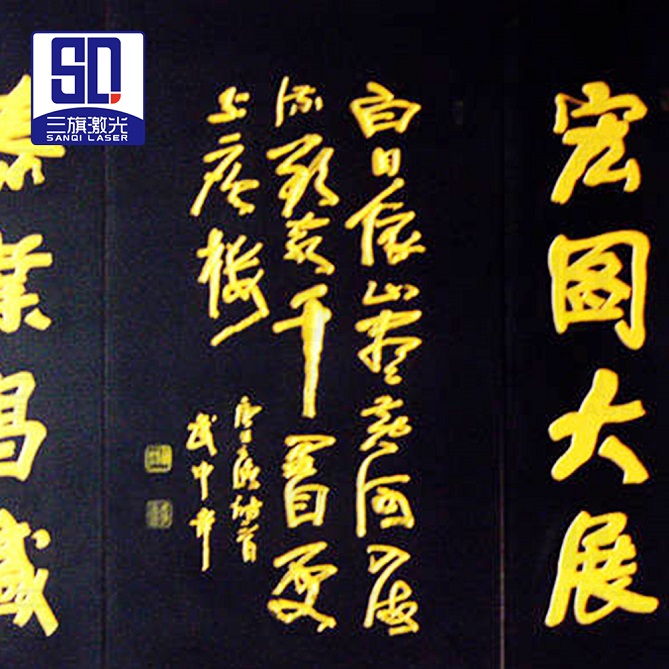 SQ
三旗激光
SANQI LASER
宏图大展
白日依山尽黄河入海
流欲穷千里目更
上一层楼
武中奇
業昌盛